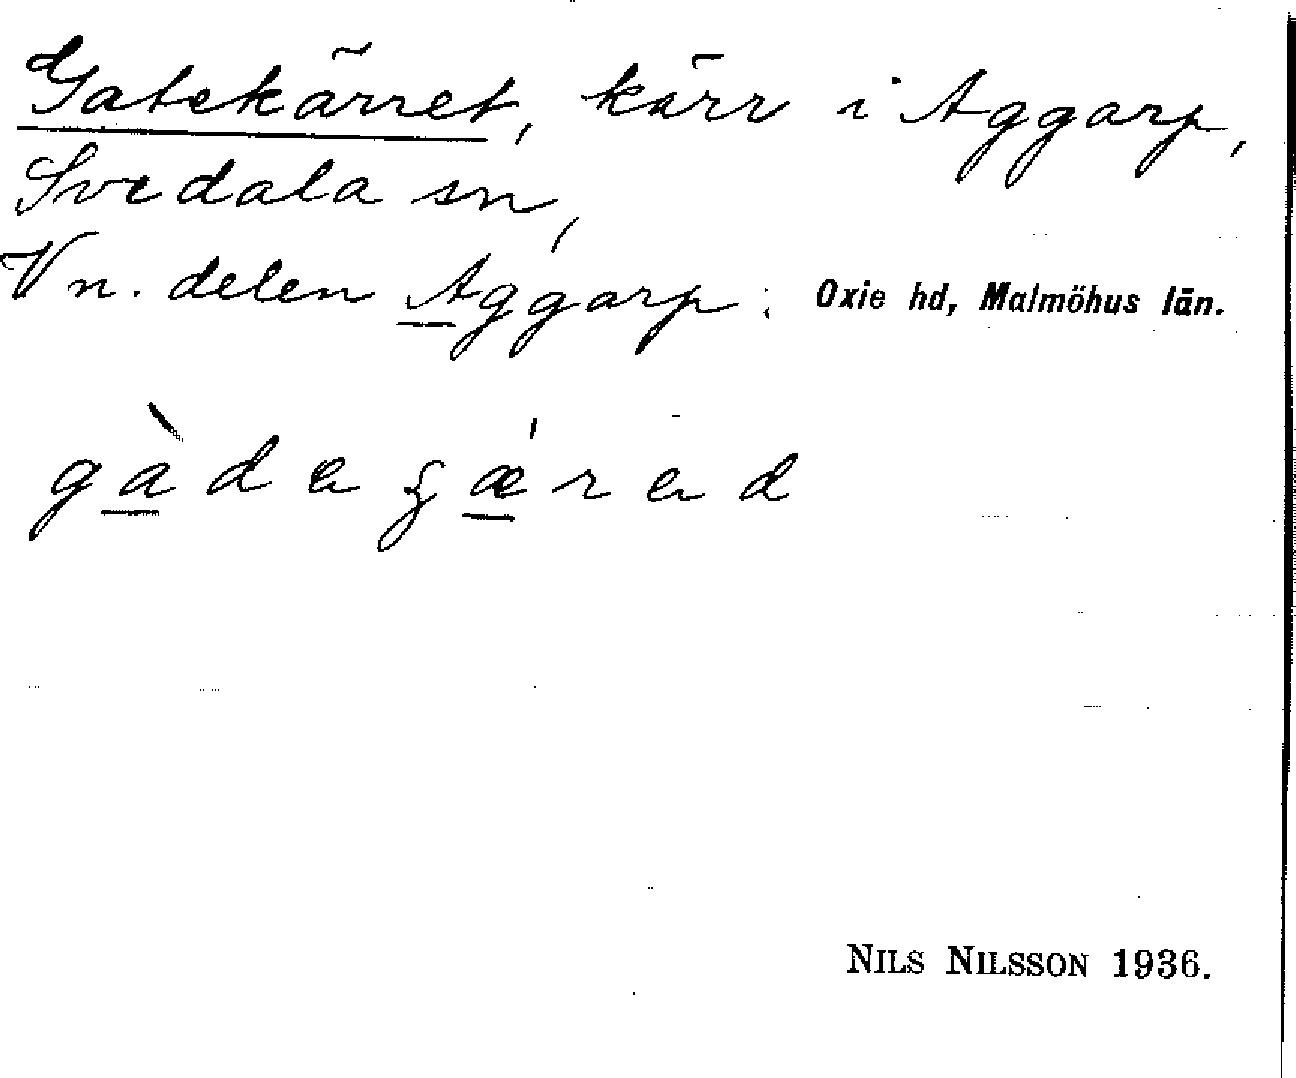 Gatekärret, kärr i Aggarp,
Svedala sn,
Vn. delen Aggarp; Oxie hd, Malmöhus län.
NILS NILSSON 1936.